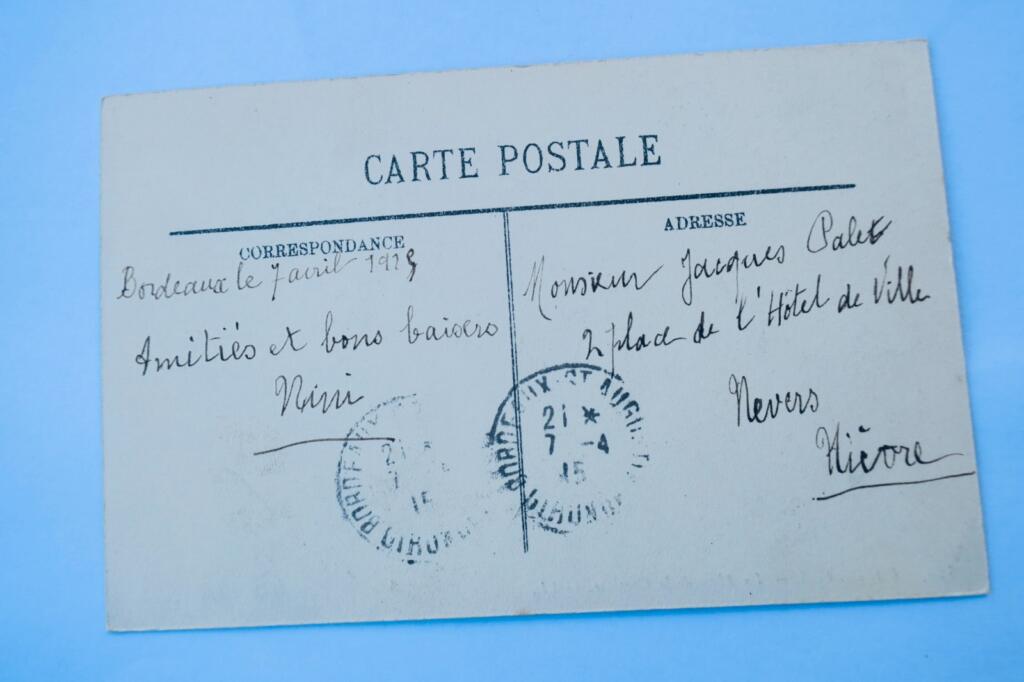 CARTE POSTALE
CORRESPONDANCE
Bordeaux le 7 avril
Amitiés et bons baisers
Nini
ADRESSE
Monsieur Jacques Palet
2 place de l'Hôtel de Ville
Nevers
Nièvre
BORDEAUX-ST AUGU
21 *
7 - 4
15
GIRONDE
BORDEAUX
15
GIRONDE